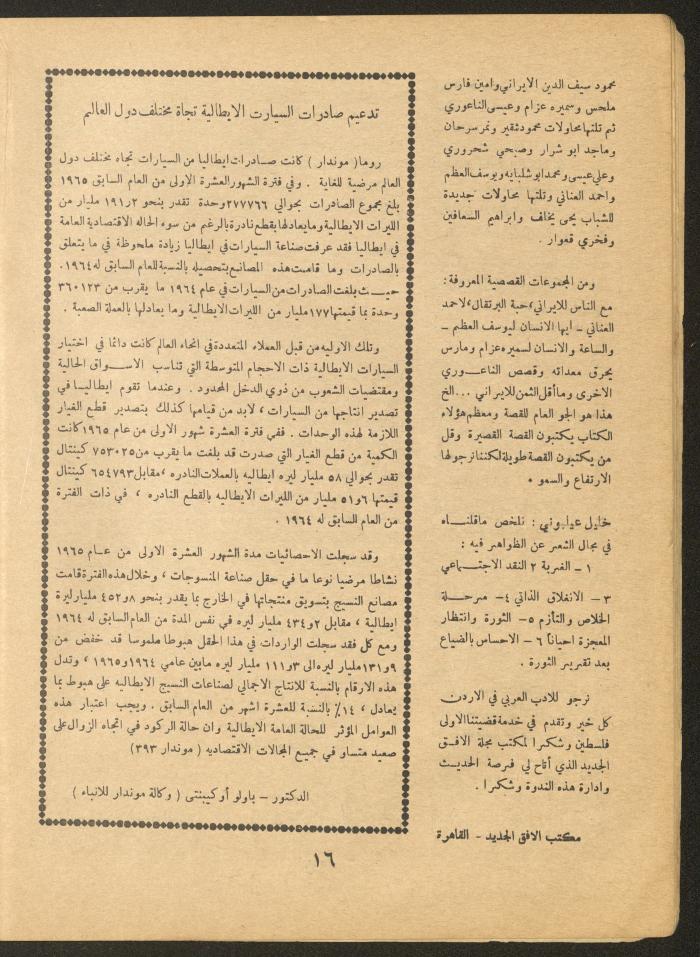 محمود سيف الدين الايراني وامين فارس
ملحس وسميره عزام وعيسى الناعوري
ثم تلتها محاولات محمود شقير ونمر سرحان
وماجد ابو شرار وصبحي شحروري
وعلي عيسى ومحمد ابو شلبايه ويوسف العظم
واحمد العناني وتلتها محاولات جديدة
للشباب يحيى يخلف وابراهيم السعافين
وفخري قعوار .
ومن المجموعات القصصية المعروفة :
مع الناس للايراني ، حبة البرتقال ، لاحمد
العناني – ايها الانسان ليوسف العظم –
والساعة والانسان لسميره عزام ومارس
يحرق معداته وقصص الناعوري
الاخرى وما أقل الثمن للايراني ... الخ
هذا هو الجو العام للقصة ومعظم هؤلاء
الكتاب يكتبون القصة القصيرة وقل
من يكتبون القصة طويلة لكننا نرجو لها
الارتفاع والسمو .
خليل عيلبوني : نلخص ما قلناه
في مجال الشعر عن الظواهر فيه :
١ – الغربة ٢ النقد الاجتماعي
٣ – الانغلاق الذاتي ٤ – مرحلة
الخلاص والتأزم ٥ – الثورة وانتظار
المعجزة احيانا ٦ – الاحساس بالضياع
بعد تقرير الثورة .
نرجو للادب العربي في الاردن
كل خير وتقدم في خدمة قضيتنا الاولى
فلسطين وشكرا لمكتب مجلة الافق
الجديد الذي أتاح لي فرصة الحديث
وادارة هذه الندوة وشكرا .
مكتب الافق الجديد – القاهرة
تدعيم صادرات السيارت الايطالية تجاة مختلف دول العالم
روما ( موندار ) كانت صادرات ايطاليا من السيارات تجاه مختلف دول
العالم مرضية للغاية . وفي فترة الشهور العشرة الاولى من العام السابق ١٩٦٥
بلغ مجموع الصادرات بحوالي ٢٧٧٧٦٦ وحدة تقدر بنحو ٢ر١٩١ مليار من
الليرات الايطالية وما يعادلها بقطع نادرة بالرغم من سوء الحاله الاقتصادية العامة
في ايطاليا فقد عرفت صناعة السيارات في ايطاليا زيادة ملحوظة في ما يتعلق
بالصادرات وما قامت هذه المصانع بتحصيله بالنسبة للعام السابق له ١٩٦٤.
حيث بلغت الصادرات من السيارات في عام ١٩٦٤ ما يقرب من ٣٦٠١٢٣
وحدة بما قيمتها ١٧٧ مليار من الليرات الايطالية وما يعادلها بالعملة الصعبة .
وتلك الاوليه من قبل العملاء المتعددة في انحاء العالم كانت دائما في اختيار
السيارات الايطالية ذات الاحجام المتوسطة التي تناسب الاسواق الحالية
ومقتضيات الشعوب من ذوي الدخل المحدود . وعندما تقوم ايطاليا في
تصدير انتاجها من السيارات ، لابد من قيامها كذلك بتصدير قطع الغيار
اللازمة لهذه الوحدات . ففي الفترة العشرة شهور الاولى من عام ١٩٦٥ كانت
الكمية من قطع الغيار التي صدرت قد بلغت ما يقرب من ٧٥٣٠٢٥ كينتال
تقدر بحوالي ٥٨ مليار ليره ايطاليه بالعملات النادره ، مقابل ٦٥٤٧٩٣ كينتال
قيمتها ٦و٥١ مليار من الليرات الايطاليه بالقطع النادره ، في ذات الفترة
من العام السابق له ١٩٦٤ .
وقد سجلت الاحصائيات مدة الشهور العشرة الاولى من عام ١٩٦٥
نشاطا مرضيا نوعا ما في حقل صناعة المنسوجات ، وخلال هذه الفترة قامت
مصانع النسيج بتسويق منتجاتها في الخارج بما يقدر بنحو ٨و٤٥٢ مليار ليرة
ايطالية ، مقابل ٢و٤٣٤ مليار ليره في نفس المدة من العام السابق له ١٩٦٤
ومع كل فقد سجلت الواردات في هذا الحقل هبوطا ملموسا قد خفض من
٩و١٣١ مليار ليره الى ٣و١١١ مليار ليره مابين عامي ١٩٦٤ و١٩٦٥ ، وتدل
هذه الارقام بالنسبة للانتاج الاجمالي لصناعات النسيج الايطاليه على هبوط بما
يعادل ، ١٤٪ بالنسبة للعشرة اشهر من العام السابق . ويجب اعتبار هذه
العوامل المؤثر للحالة العامة الايطالية وان حالة الركود في اتجاه الزوال على
صعيد متساو في جميع المجالات الاقتصاديه ( موندار ٣٩٣)
الدكتور – باولو أوكيبنتى ( وكالة موندار للانباء )
١٦